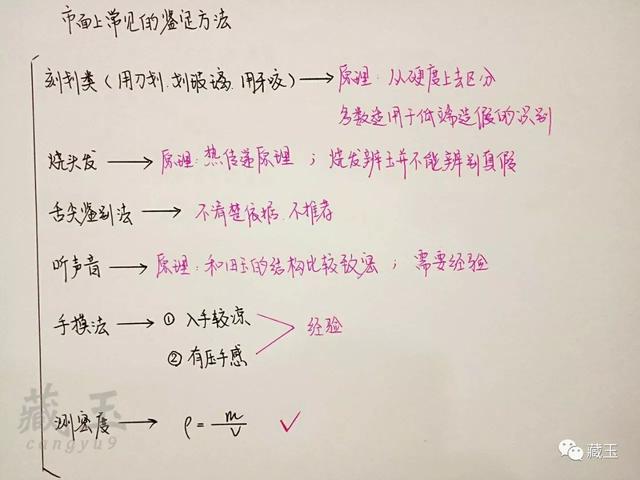 市面上常见的鉴定方法
刻划类（用刀划.划玻璃.用牙咬）→ 原理：从硬度上去区分
多数适用于低端造假的识别
烧头发 → 原理：热传递原理；烧发辨玉并不能辨别真假
舌尖鉴别法 → 不清楚依据.不推荐
听声音 → 原理：和田玉的结构比较致密；需要经验
手摸法 → ① 入手较凉
经验
② 有压手感
测密度 → ρ = m/v ✓
藏玉
cangyu9
藏玉